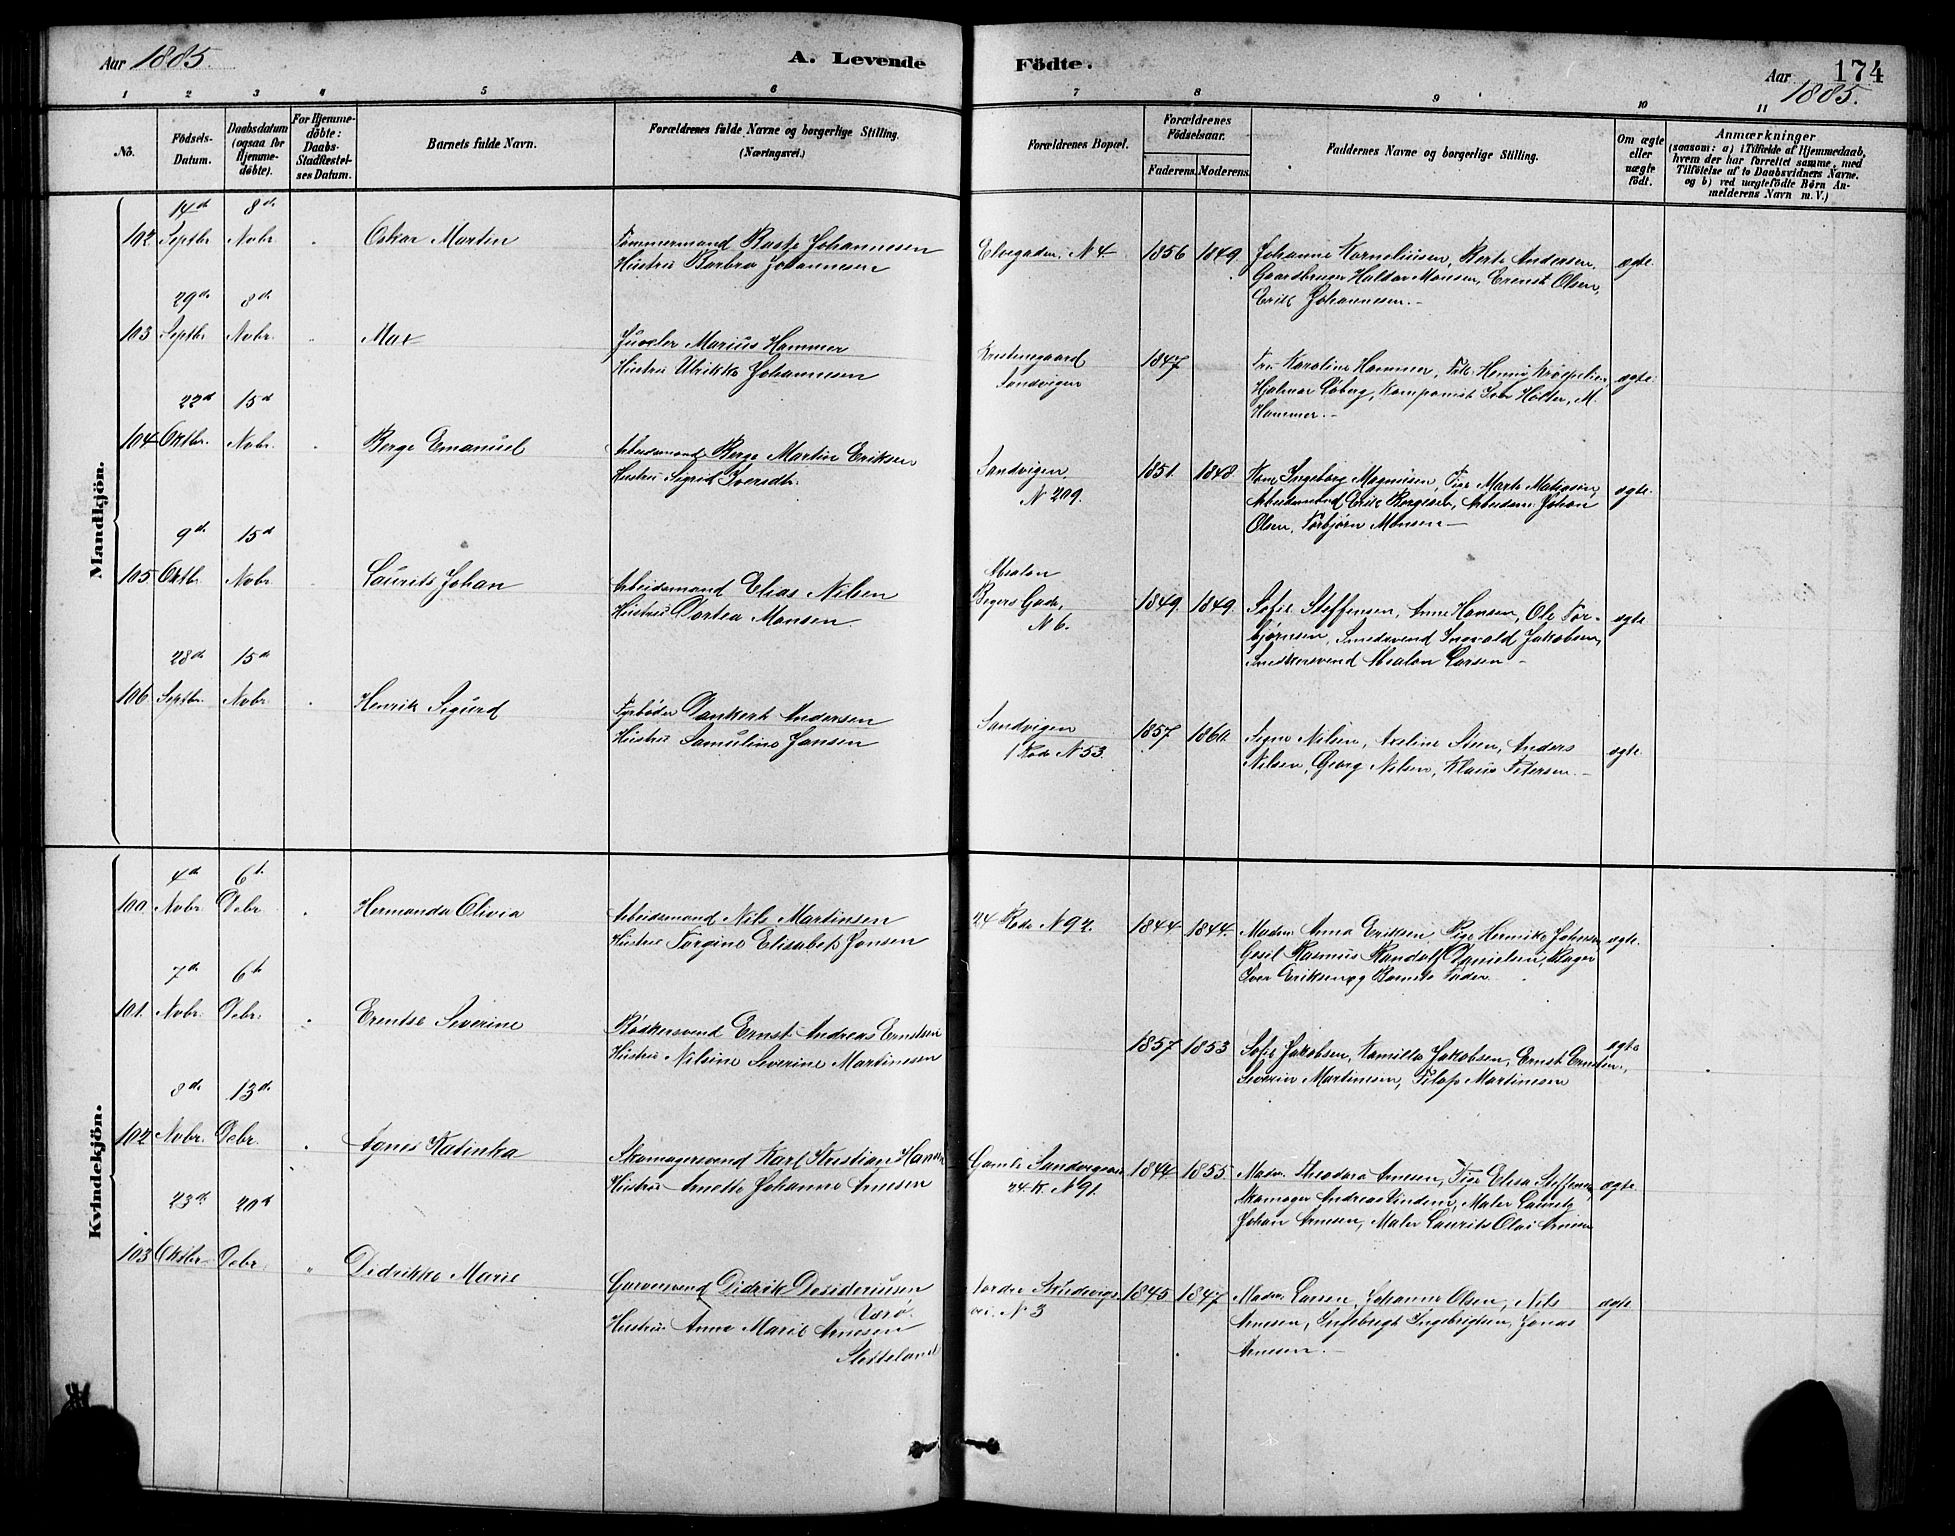 Aar 1885.
A. Levende
Födte.
174
Aar 1885.
1 2 3 4 5 6 7 8 9 10 11
No.
Födsels-Datum.
Daabsdatum (ogsaa for Hjemme-döbte).
For Hjemme-döbte: Daabs-Stadfæstel-ses Datum.
Barnets fulde Navn.
Forældrenes fulde Navne og borgerlige Stilling. (Næringsvei.)
Forældrenes Bopæl.
Forældrenes Födselsaar.
Faderens. Moderens.
Faddernes Navne og borgerlige Stilling.
Om ægte eller uægte födt.
Anmærkninger
(saasom: a) i Tilfælde af Hjemmedaab, hvem der har forrettet samme, med Tilföielse af to Daabsvidners Navne. og b) ved uægtefödte Börn An-melderens Navn m. V.)
Mandkjön.
14d 8d
102 Septbr Novbr " Oskar Martin
Tømmermand Johannesen
Hustru Barbra Johannesen
Elvegaden N 4. 1856 1849.
Johanne Korneliusen, Berte Andersen,
Gaardbruger Haldor Monsen, Erenst Olsen,
Erik Johannesen.-
ægte.
29de 8d
103 Septbr Novbr. " Max
Juveler Marius Hammer
Hustru Ulrikke Johannesen
Sandvigen
1847
Karoline Hammer,
Hjalmar Løberg, Komponist Iver Holter, M.
Hammer.-
ægte.
22d 15d
104 Oktbr. Novbr. " Berge Emanuel
Arbeidsmand Berge Martin Eriksen
Hustru Sigrid Iversdtr.
Sandvigen
N 209.
1851. 1848.
Ingeborg Magnusen,
Arbeidsmand Erik Børgesen, Arbeidsm. Johan
Olsen, Torbjørn Monsen-
ægte.
9d 15d
105 Oktbr Novbr. " Laurits Johan
Arbeidsmand Elias Nilsen
Hustru Dortea Monsen
Absalon
Beyers Gade,
N 6.
1849. 1849.
Sofie Steffensen, Anne Hansen, Ole Tor-
bjørnsen, Smedsvend Ingvald Jakobsen,
Snedkersvend Absalon Larsen-
ægte
28de 15d
106 Septbr. Novbr. " Henrik Sigurd
Fyrbøder Dankert Andersen
Hustru Samuline Jansen
Sandvigen
1 Rode N 53.
1857. 1860.
Signe Nilsen, Axeline Steen, Anders
Nilsen, Georg Nilsen, Klaus Petersen.-
ægte.
Kvindekjön.
4d 6t
100 Novbr. Debr. " Hermanda Olivia
Arbeidsmand Nils Martinsen
Hustru Torgine Elisabet Jonsen
24 Rode N 92. 1844 1844.
Madm. Anna Eriksen, Pige Henrikke Johnsen
Rasmus Randolf Danielsen, Bager
Iver Eriksen og Barnets Fader.
ægte.
7d 6t
101. Novbr. Debr. " Erentse Severine
Bødkersvend Ernst Andreas Ernstsen
Hustru Nilsine Severine Martinesen
1857 1853
Sofie Jakobsen, Kamilla Jakobsen, Ernst Ernstsen,
Severin Martinesen, Martinesen
ægte
8de 13de
102 Novbr. Debr. " Agnes Katinka
Skomagersvend Karl Kristian Hansen
Hustru Anette Johanne Arnesen
Gamle Sandvigsvei
24. R. N 91.
1844 1855
Madm. Theodora Arnesen, Pige Elisa Steffensen
Skomager Andreas Vindenes, Maler Lauritz
Johan Arnesen, Maler Laurits Olai Arnesen
ægte
23d. 20d
103 Oktbr. Debr. " Didrikke Marie
Garversvend Didrik Desideriusen
Værø
Hustru Anne Marie Arnesen
Sletteland
Nordre Skudevigs-
vei. N 3
1845 1847
Madm. Larsen, Johanne Olsen, Nils
Arnesen, Ingebrigt Ingebrigtsen, Jonas
Arnesen.-
ægte